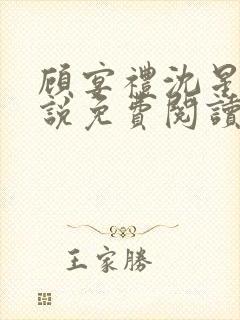 顾宴禮沈星
說免費閱讀
王家勝